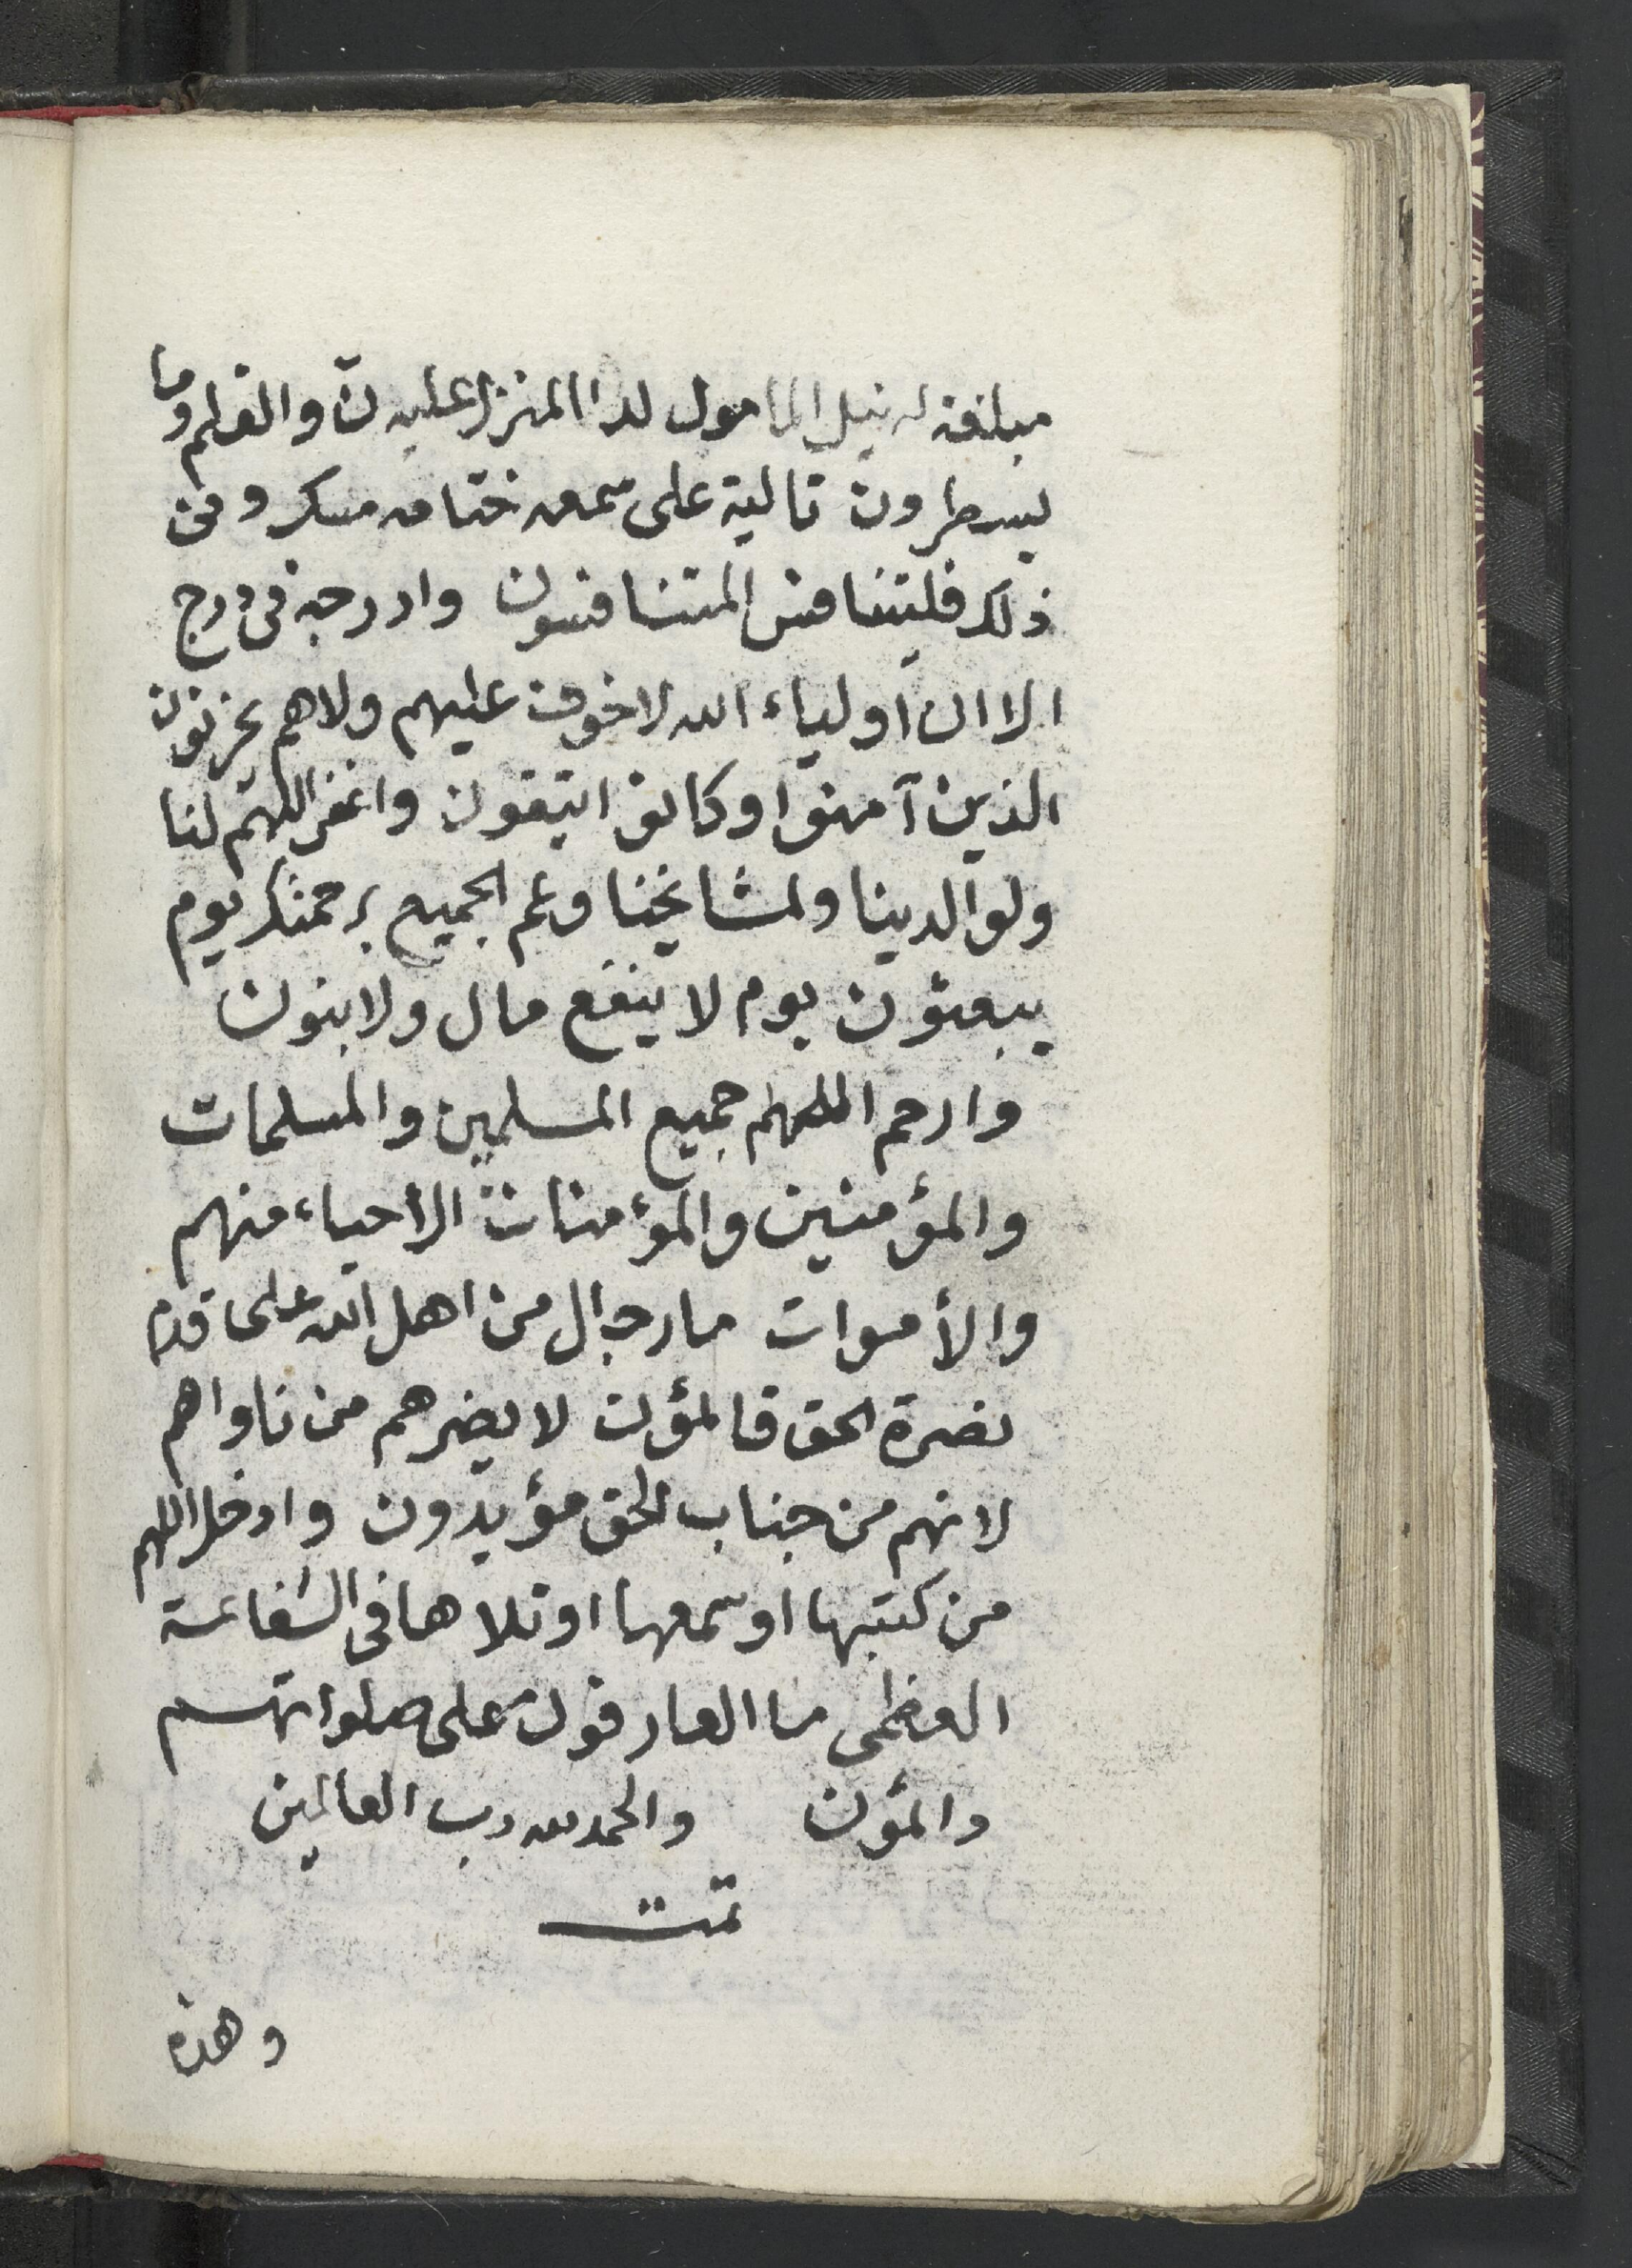 مبلغة له نيل المامول لدا المنزل عليه ن والقلم وما
يسطرون تالية على سمعه ختامه مسك وفى
ذلك فليتنافس المتنافسون وادرجه فى درج
الا ان اولياء الله لا خوف عليهم ولاهم يحزنون
الذين آمنوا وكانوا يتقون واغفر اللهم لنا
ولوالدينا ولمشايخنا وعم الجميع برحمتك يوم
يبعثون يوم لا ينفع مال ولا بنون
وارحم اللهم جميع المسلمين والمسلمات
والمؤمنين والمؤمنات الأحياء منهم
والأموات ما رجال من اهل الله على قدم
نصرة الحق قائمون لا يضرهم من ناواهم
لانهم من جناب الحق مؤيدون وادخل اللهم
من كتبها او سمعها او تلاها فى الشفاعة
العظمى ما العارفون على صلواتهم
دائمون والحمد لله رب العالمين
تمت
وهذه